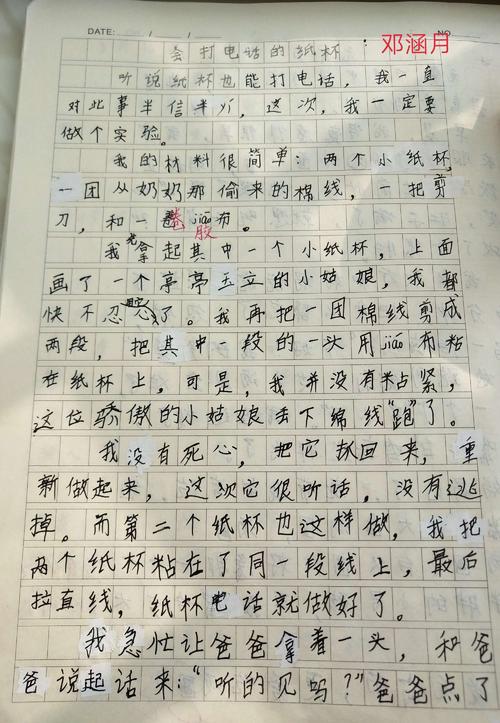 DATE: / / NO
邓涵月
会打电话的纸杯
听说纸杯也能打电话，我一直
对此事半信半疑，这次，我一定要
做个实验。
我的材料很简单：两个小纸杯，
一团从奶奶那偷来的棉线，一把剪
刀，和一卷jiāo布。
胶
我先拿起其中一个小纸杯，上面
画了一个亭亭玉立的小姑娘，我都
快不忍心了。我再把一团棉线剪成
两段，把其中一段的一头用jiāo布粘
在纸杯上，可是，我并没有粘紧，
这位骄傲的小姑娘丢下绵线“跑”了。
我没有死心，把它抓回来，重
新做起来，这次它很听话，没有逃
掉。而第二个纸杯也这样做，我把
两个纸杯粘在了同一段线上，最后
拉直线，纸杯电话就做好了。
我急忙让爸爸拿着一头，和爸
爸说起话来：“听的见吗？”爸爸点了